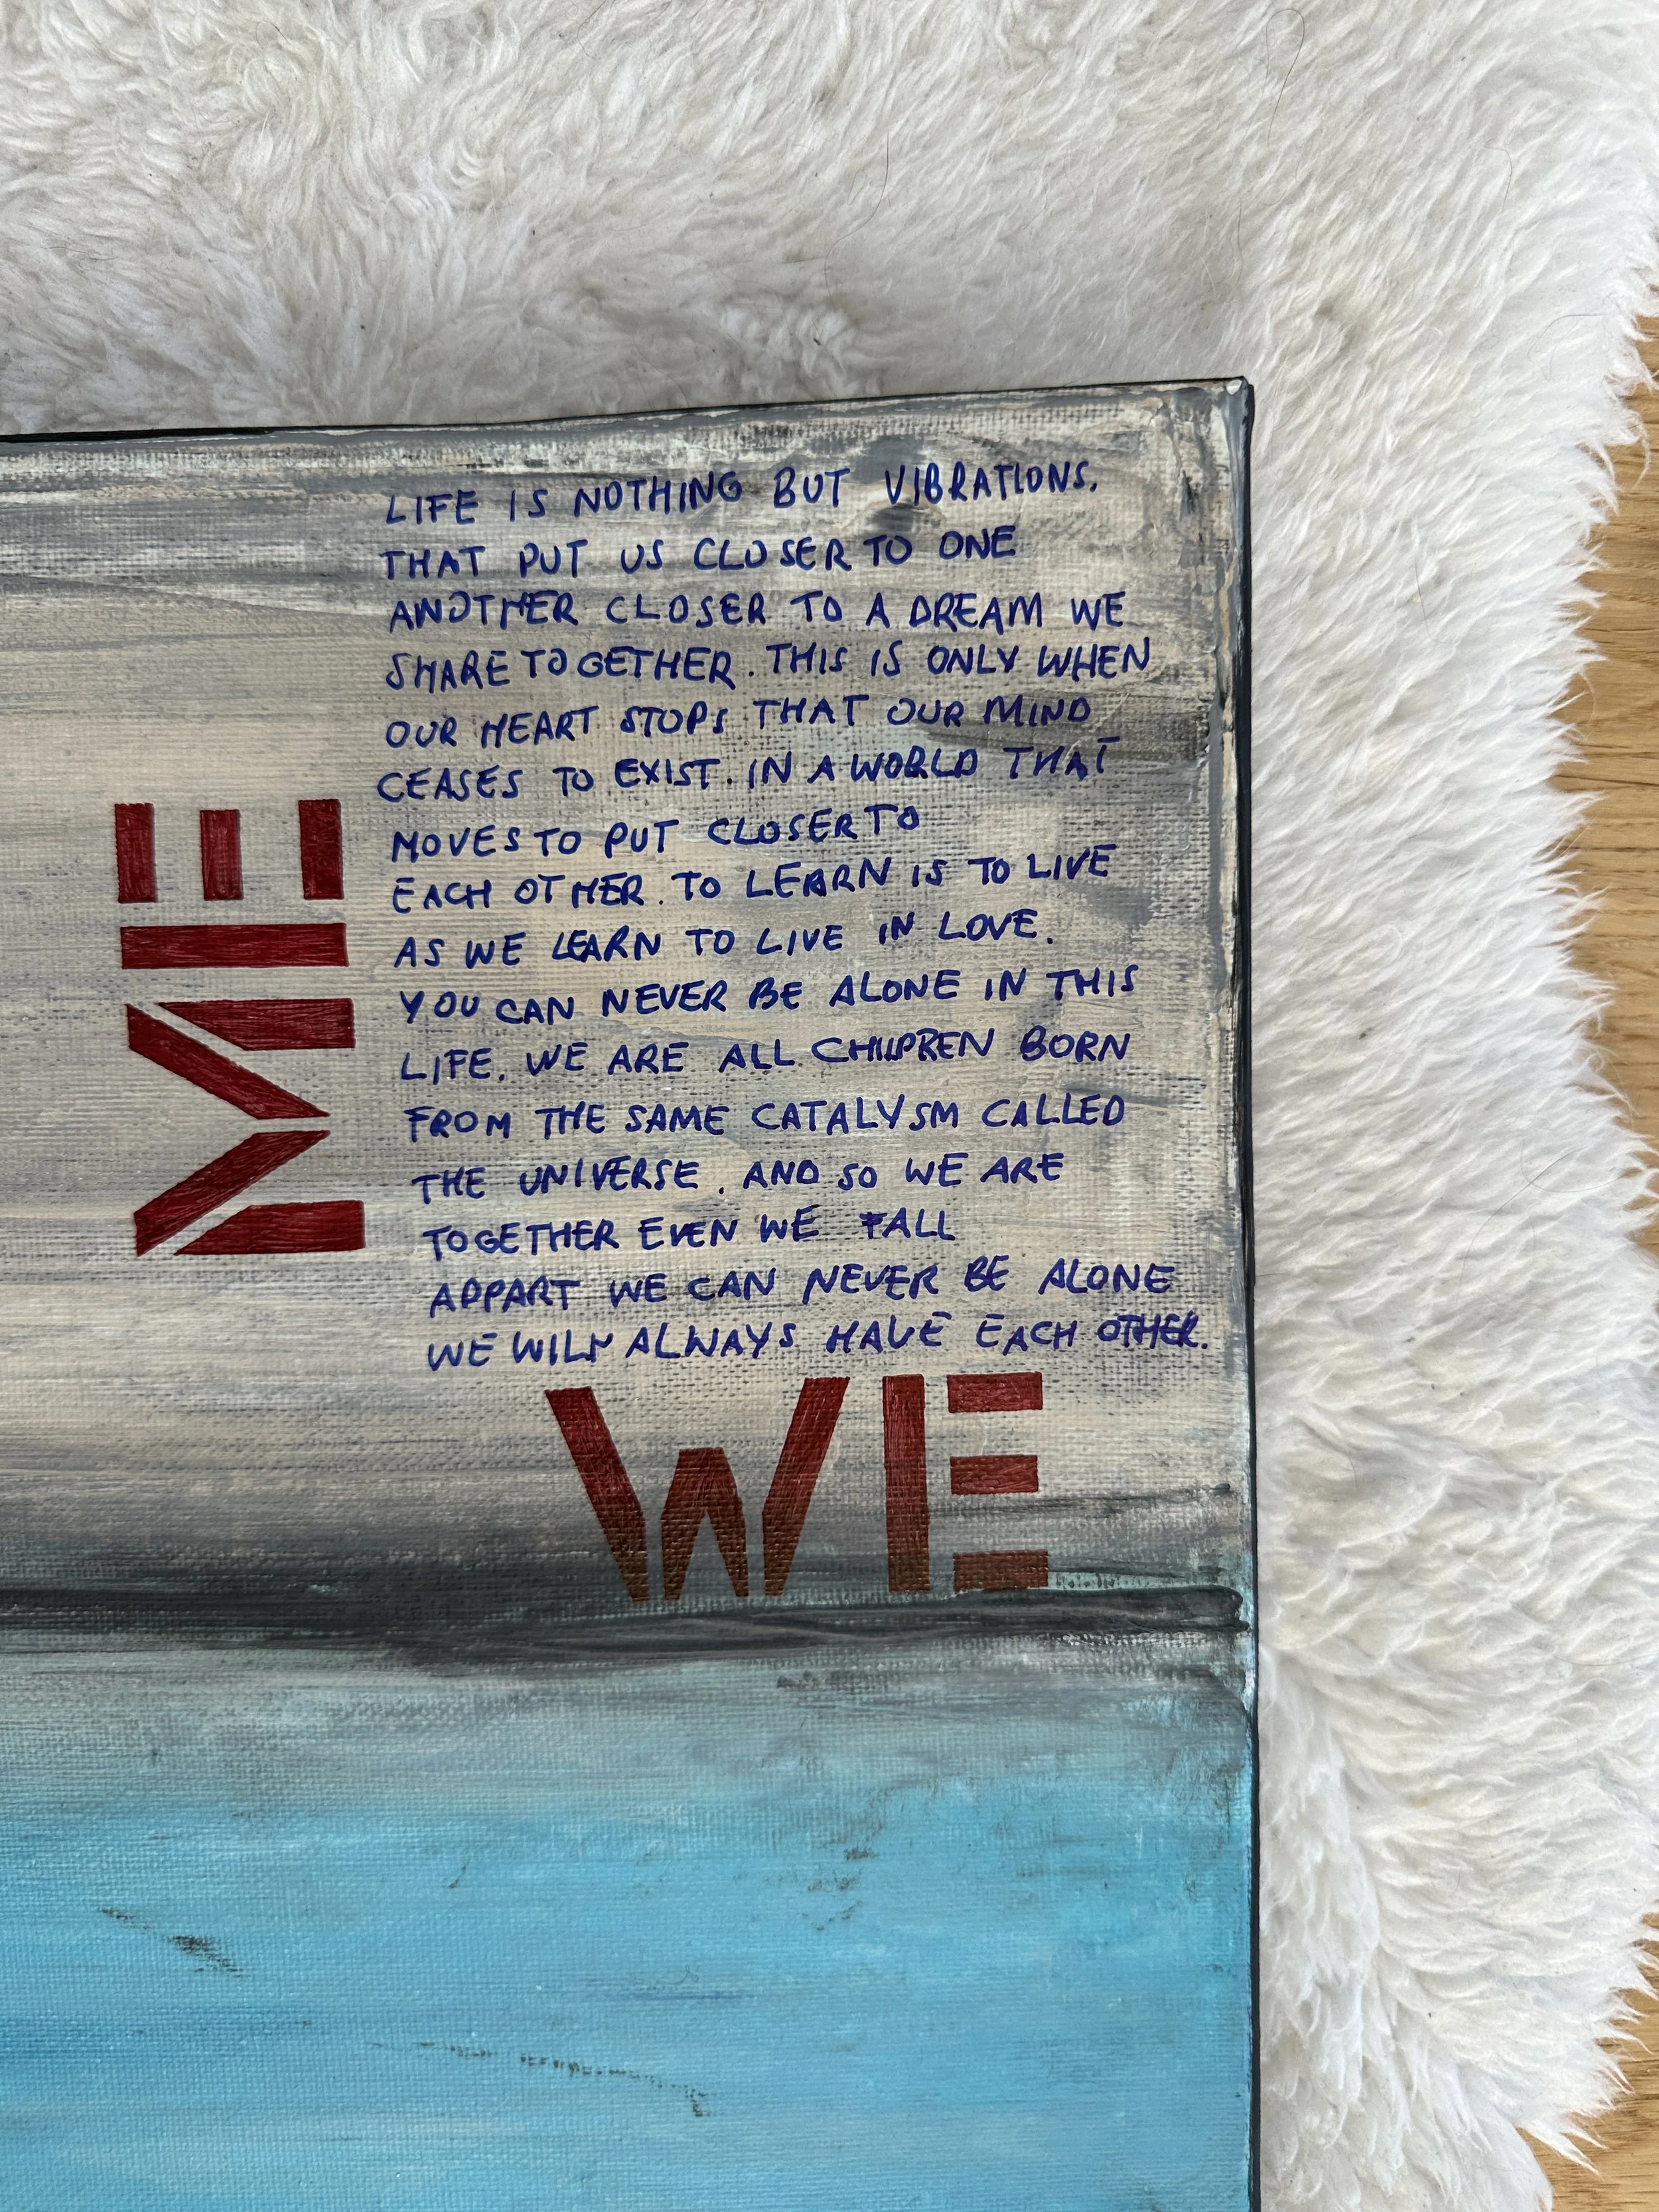 LIFE IS NOTHING BUT VIBRATIONS.
THAT PUT US CLOSER TO ONE
ANOTHER CLOSER TO A DREAM WE
SHARE TOGETHER. THIS IS ONLY WHEN
OUR HEART STOPS THAT OUR MIND
CEASES TO EXIST. IN A WORLD THAT
MOVES TO PUT CLOSER TO
EACH OTHER. TO LEARN IS TO LIVE
AS WE LEARN TO LIVE IN LOVE.
YOU CAN NEVER BE ALONE IN THIS
LIFE. WE ARE ALL CHILDREN BORN
FROM THE SAME CATALYSM CALLED
THE UNIVERSE. AND SO WE ARE
TOGETHER EVEN WE FALL
APPART WE CAN NEVER BE ALONE
WE WILL ALWAYS HAVE EACH OTHER.
ME
WE